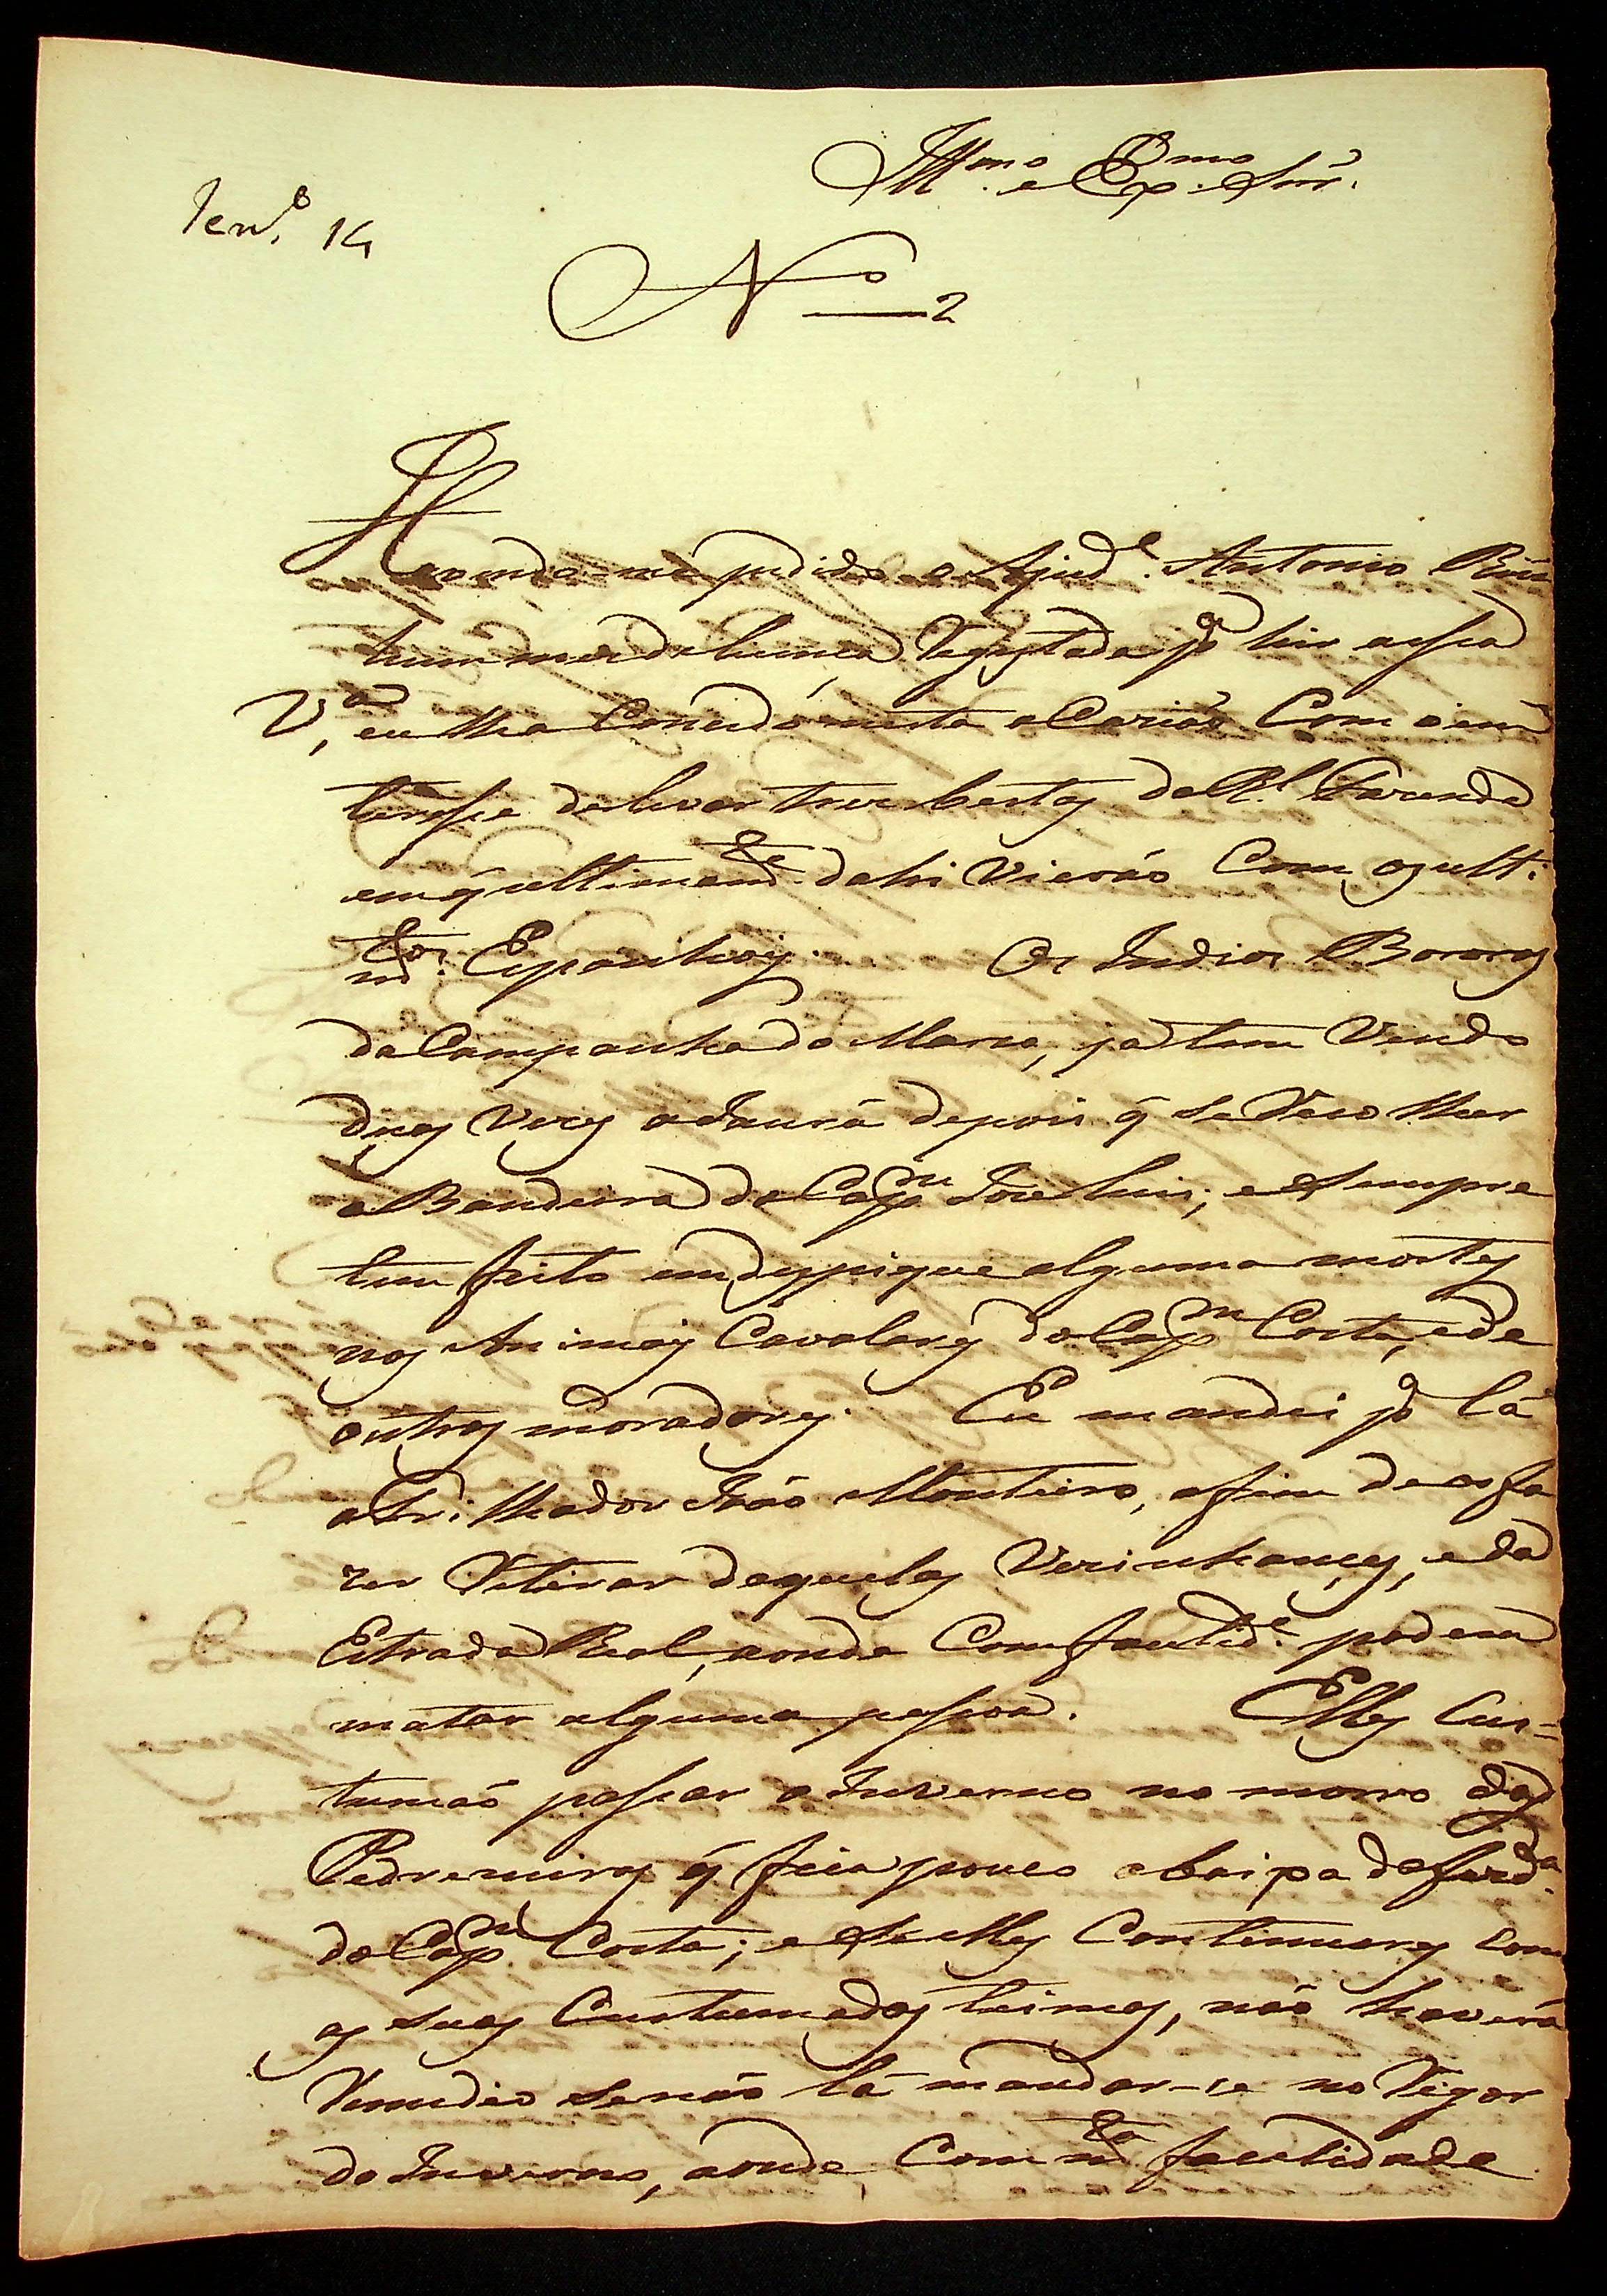 Illmo. e Exmo. Snr.
Jenro. 14
No. 2
Havendo-me pedido o Ajude. Antonio
huma p.a hir a essa
V.a, eu lha Concedi nesta com o in
teresse de levar trez bestas da Rl. Fazenda
em q̃ ultimamte. dahi Vierão Com os ult.
mtos. Espanhois. Os Indios Bororos
da Campanha do Mario, ja tem Vindo
duas Vezes a Jaurú depois q̃ se Recolheu
a Bandeira do Capm. Joze Luis; e Sempre
tem feito em despique alguma mortes
nos Animaes Cavalares do Capm. Costa, e de
outros moradores. Eu mandei p.a lá
o Tri lhador João Monteiro, afim de os fa
zer Retirar daquelas Vezinhanças, e da
Estrada Real, aonde Com facilide. podem
matar alguma pessoa. Elles Cus-
tumão passar o Inverno no morro das
Pedreneiras q̃ fica pouco abaixo da fazda.
do Capm. Costa; e Se elles Continuarem com
as suas Custumadas teimas, não haverá
Remedio senão lá mandar-se no Rigor
do Inverno, aonde Com mta. facilidade